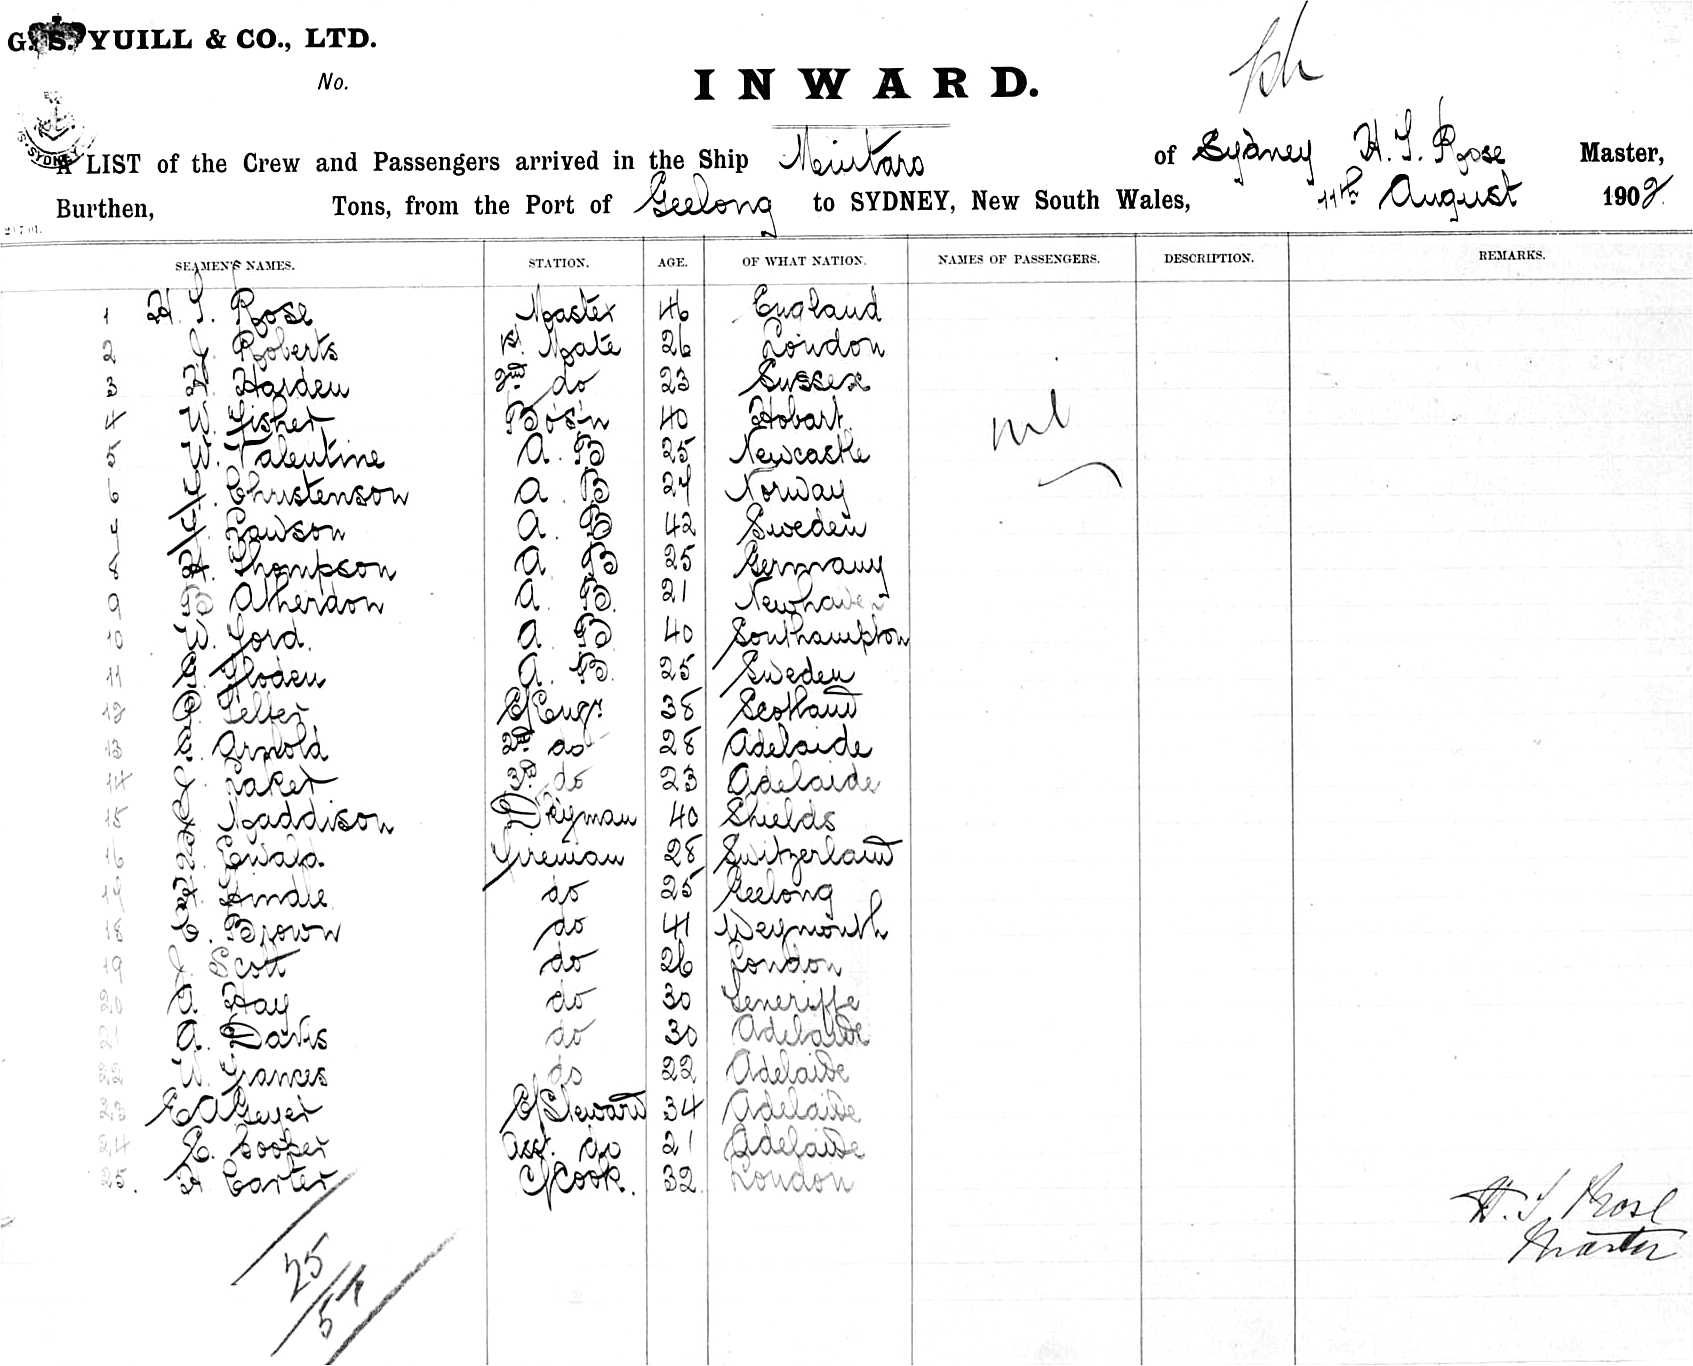 G. S. YUILL & CO., LTD.
No.
INWARD.
A LIST of the Crew and Passengers arrived in the Ship Mintaro of Sydney H. T. Rose Master,
Burthen, Tons, from the Port of Geelong to SYDNEY, New South Wales, 11th August 1902.
SEAMEN'S NAMES. STATION. AGE. OF WHAT NATION. NAMES OF PASSENGERS. DESCRIPTION. REMARKS.
1 H. T. Rose Master 46 England
2 J. Roberts 1st Mate 26 London
3 H. Harden 2nd do 23 Sussex
4 W. Fisher Bos'n 40 Hobart
nil
5 W. Valentine A. B 25 Newcastle
6 Christenson A. B 24 Norway
7 Lawson A. B 42 Sweden
8 H. Thompson A B 25 Germany
9 B Atherdon A. B. 21 Newhaven
10 W. Ford. A. B. 40 Southampton
11 Floden A. B. 25 Sweden
12 Telfer C/Engr 38 Scotland
13 Arnold 2nd do 28 Adelaide
14 J. Laker 3rd do 23 Adelaide
15 Maddison D'keyman 40 Shields
16 Ewald. Fireman 28 Switzerland
17 Hindle do 25 Geelong
18 C. Brown do 41 Weymouth
19 J Scott do 26 London
20 Hay do 30 Teneriffe
21 A. Davis do 30 Adelaide
22 W. Frances do 22 Adelaide
23 E A Geyer C/Steward 34 Adelaide
24 E. Cooper Asst. do 21 Adelaide
25. H Carter C/Cook. 32. London
H. T. Rose
Master
25